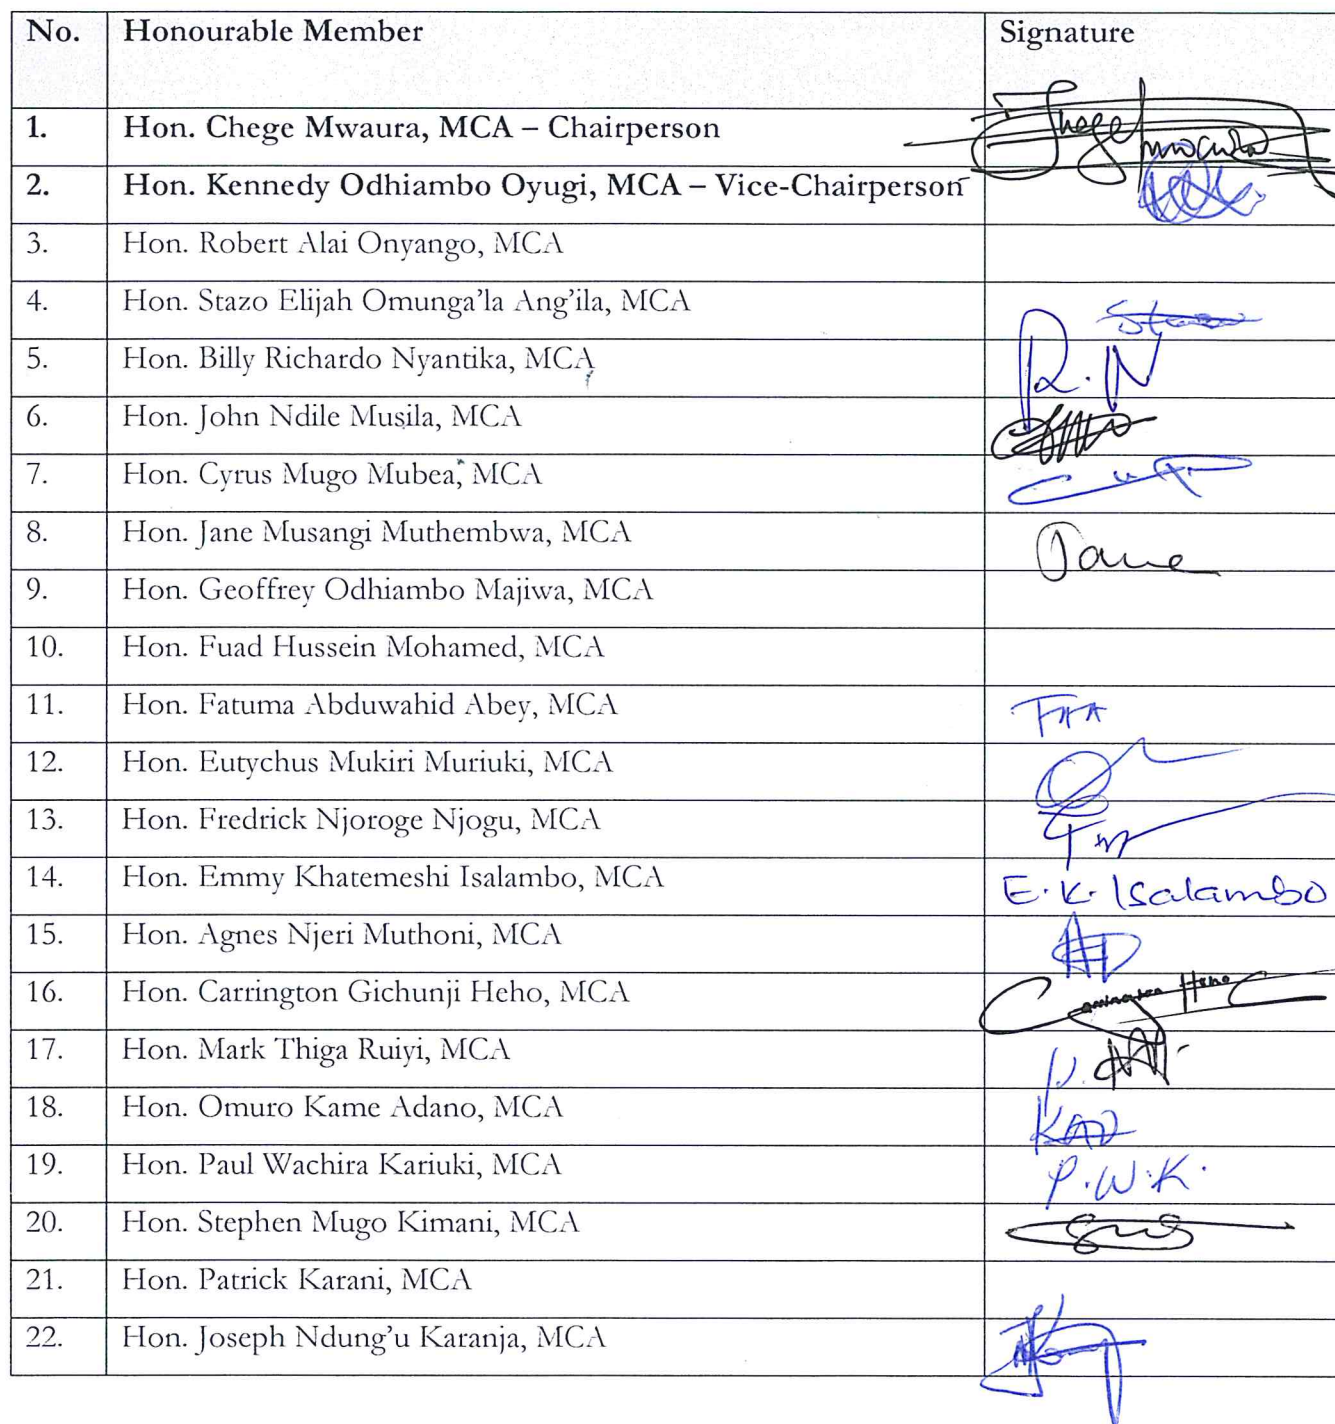 No. Honourable Member Signature
1. Hon. Chege Mwaura, MCA – Chairperson Chege Mwaura
2. Hon. Kennedy Odhiambo Oyugi, MCA – Vice-Chairperson
3. Hon. Robert Alai Onyango, MCA
4. Hon. Stazo Elijah Omunga’la Ang’ila, MCA
5. Hon. Billy Richardo Nyantika, MCA R.N
6. Hon. John Ndile Musila, MCA
7. Hon. Cyrus Mugo Mubea, MCA
8. Hon. Jane Musangi Muthembwa, MCA Jane
9. Hon. Geoffrey Odhiambo Majiwa, MCA
10. Hon. Fuad Hussein Mohamed, MCA
11. Hon. Fatuma Abduwahid Abey, MCA FAA
12. Hon. Eutychus Mukiri Muriuki, MCA
13. Hon. Fredrick Njoroge Njogu, MCA
14. Hon. Emmy Khatemeshi Isalambo, MCA E.K. Isalambo
15. Hon. Agnes Njeri Muthoni, MCA
16. Hon. Carrington Gichunji Heho, MCA Carrington Heho
17. Hon. Mark Thiga Ruiyi, MCA
18. Hon. Omuro Kame Adano, MCA
19. Hon. Paul Wachira Kariuki, MCA P.W.K.
20. Hon. Stephen Mugo Kimani, MCA
21. Hon. Patrick Karani, MCA
22. Hon. Joseph Ndung’u Karanja, MCA